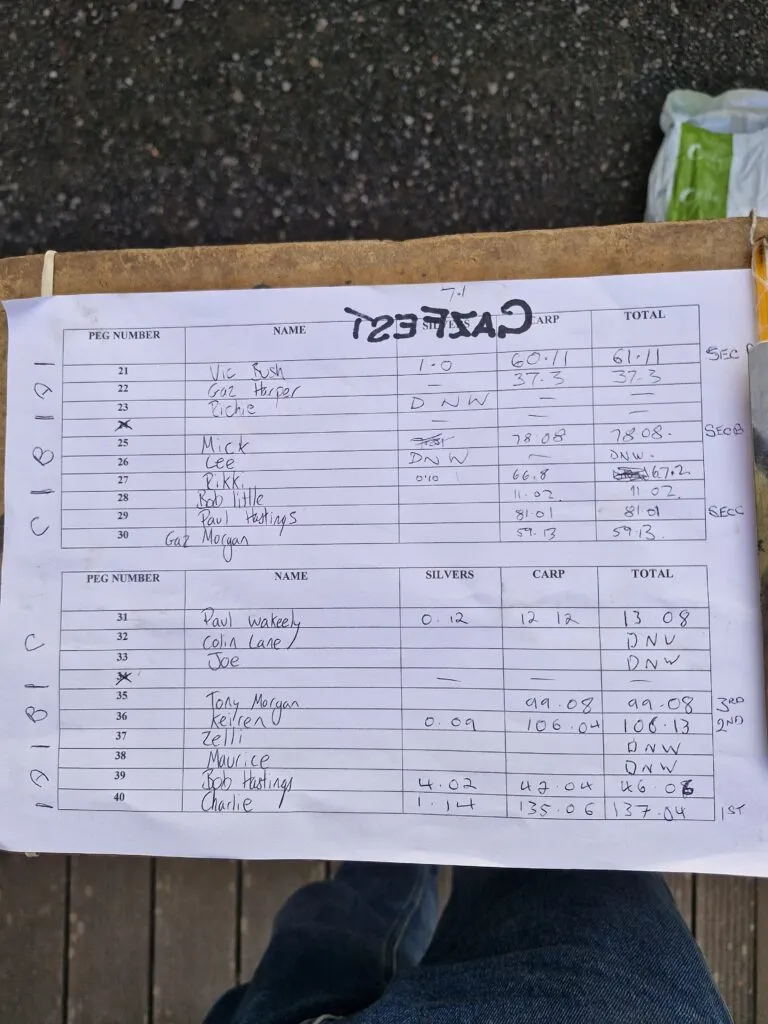 7.1
GAZFEST
PEG NUMBER NAME SILVERS CARP TOTAL
21 Vic Bush 1.0 60.11 61.11 SEC
22 Gaz Harper — 37.3 37.3
23 Richie DNW — —
— — —
25 Mick 78.08 78.08. SEC B
26 Lee DNW — DNW.
27 Rikki 0.10 66.8 67.2
28 Bob little 11.02. 11 02.
29 Paul Hastings 81.01 81.01 SEC C
30 Gaz Morgan 59.13 59.13.
PEG NUMBER NAME SILVERS CARP TOTAL
31 Paul Wakeely 0.12 12 12 13 08
32 Colin Lane DNW
33 Joe DNW
— — —
35 Tony Morgan 99.08 99.08 3RD
36 Keiren 0.09 106.04 106.13 2ND
37 Zelli DNW
38 Maurice DNW
39 Bob Hastings 4.02 42.04 46.06
40 Charlie 1.14 135.06 137.04 1ST
C
B
D
C
B
D